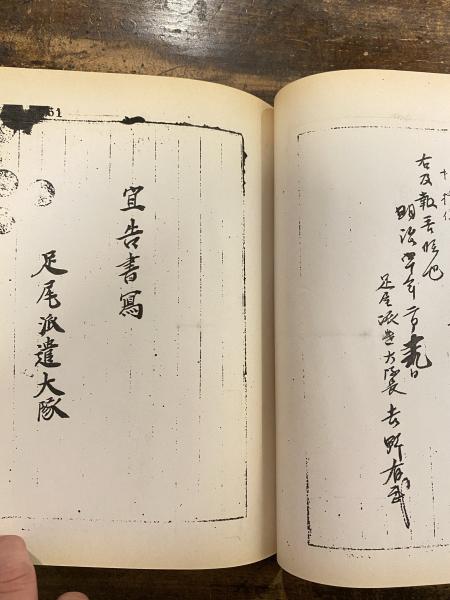 右及報告候也
明治四十年二月日
足尾派遣大隊長 吉野有武
宣告書寫
足尾派遣大隊